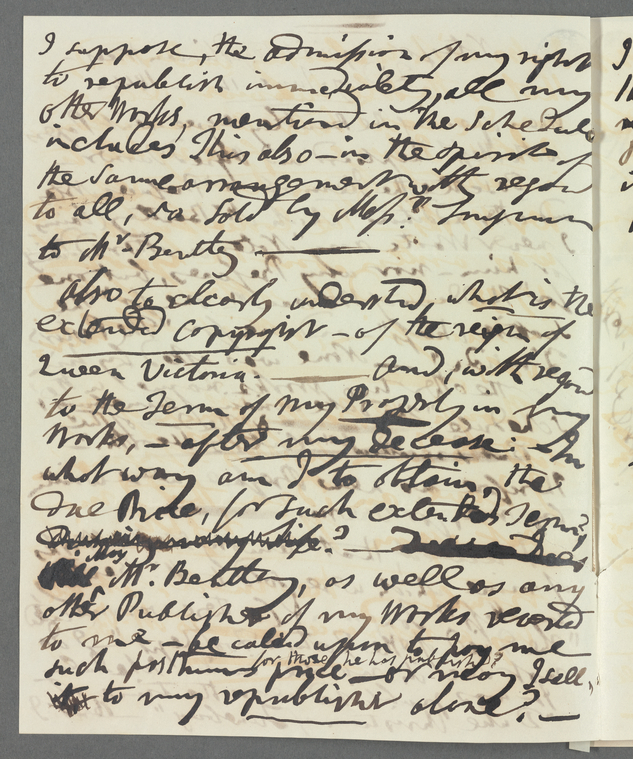 I suppose, the admission of my right
to republish immediately, all my
other Works, mentioned in the Schedule
includes this also – in the spirit of
the same arrangement with regard
to all, as sold by Messrs
to Mr. Bentley
Also to clearly understand, what is the
extended copyright – of the reign of
Queen Victoria. and, with regard
to the Term of my Property in my
Works, – after my decease: – In
what way am I to obtain, the
due Price, for such extended Term,
life?
May Mr. Bentley, as well as any
other Publisher of my Works reverted
to me – be called upon to pay me
for those he has published?
such posthumous price – or may I sell,
to my republisher alone? –